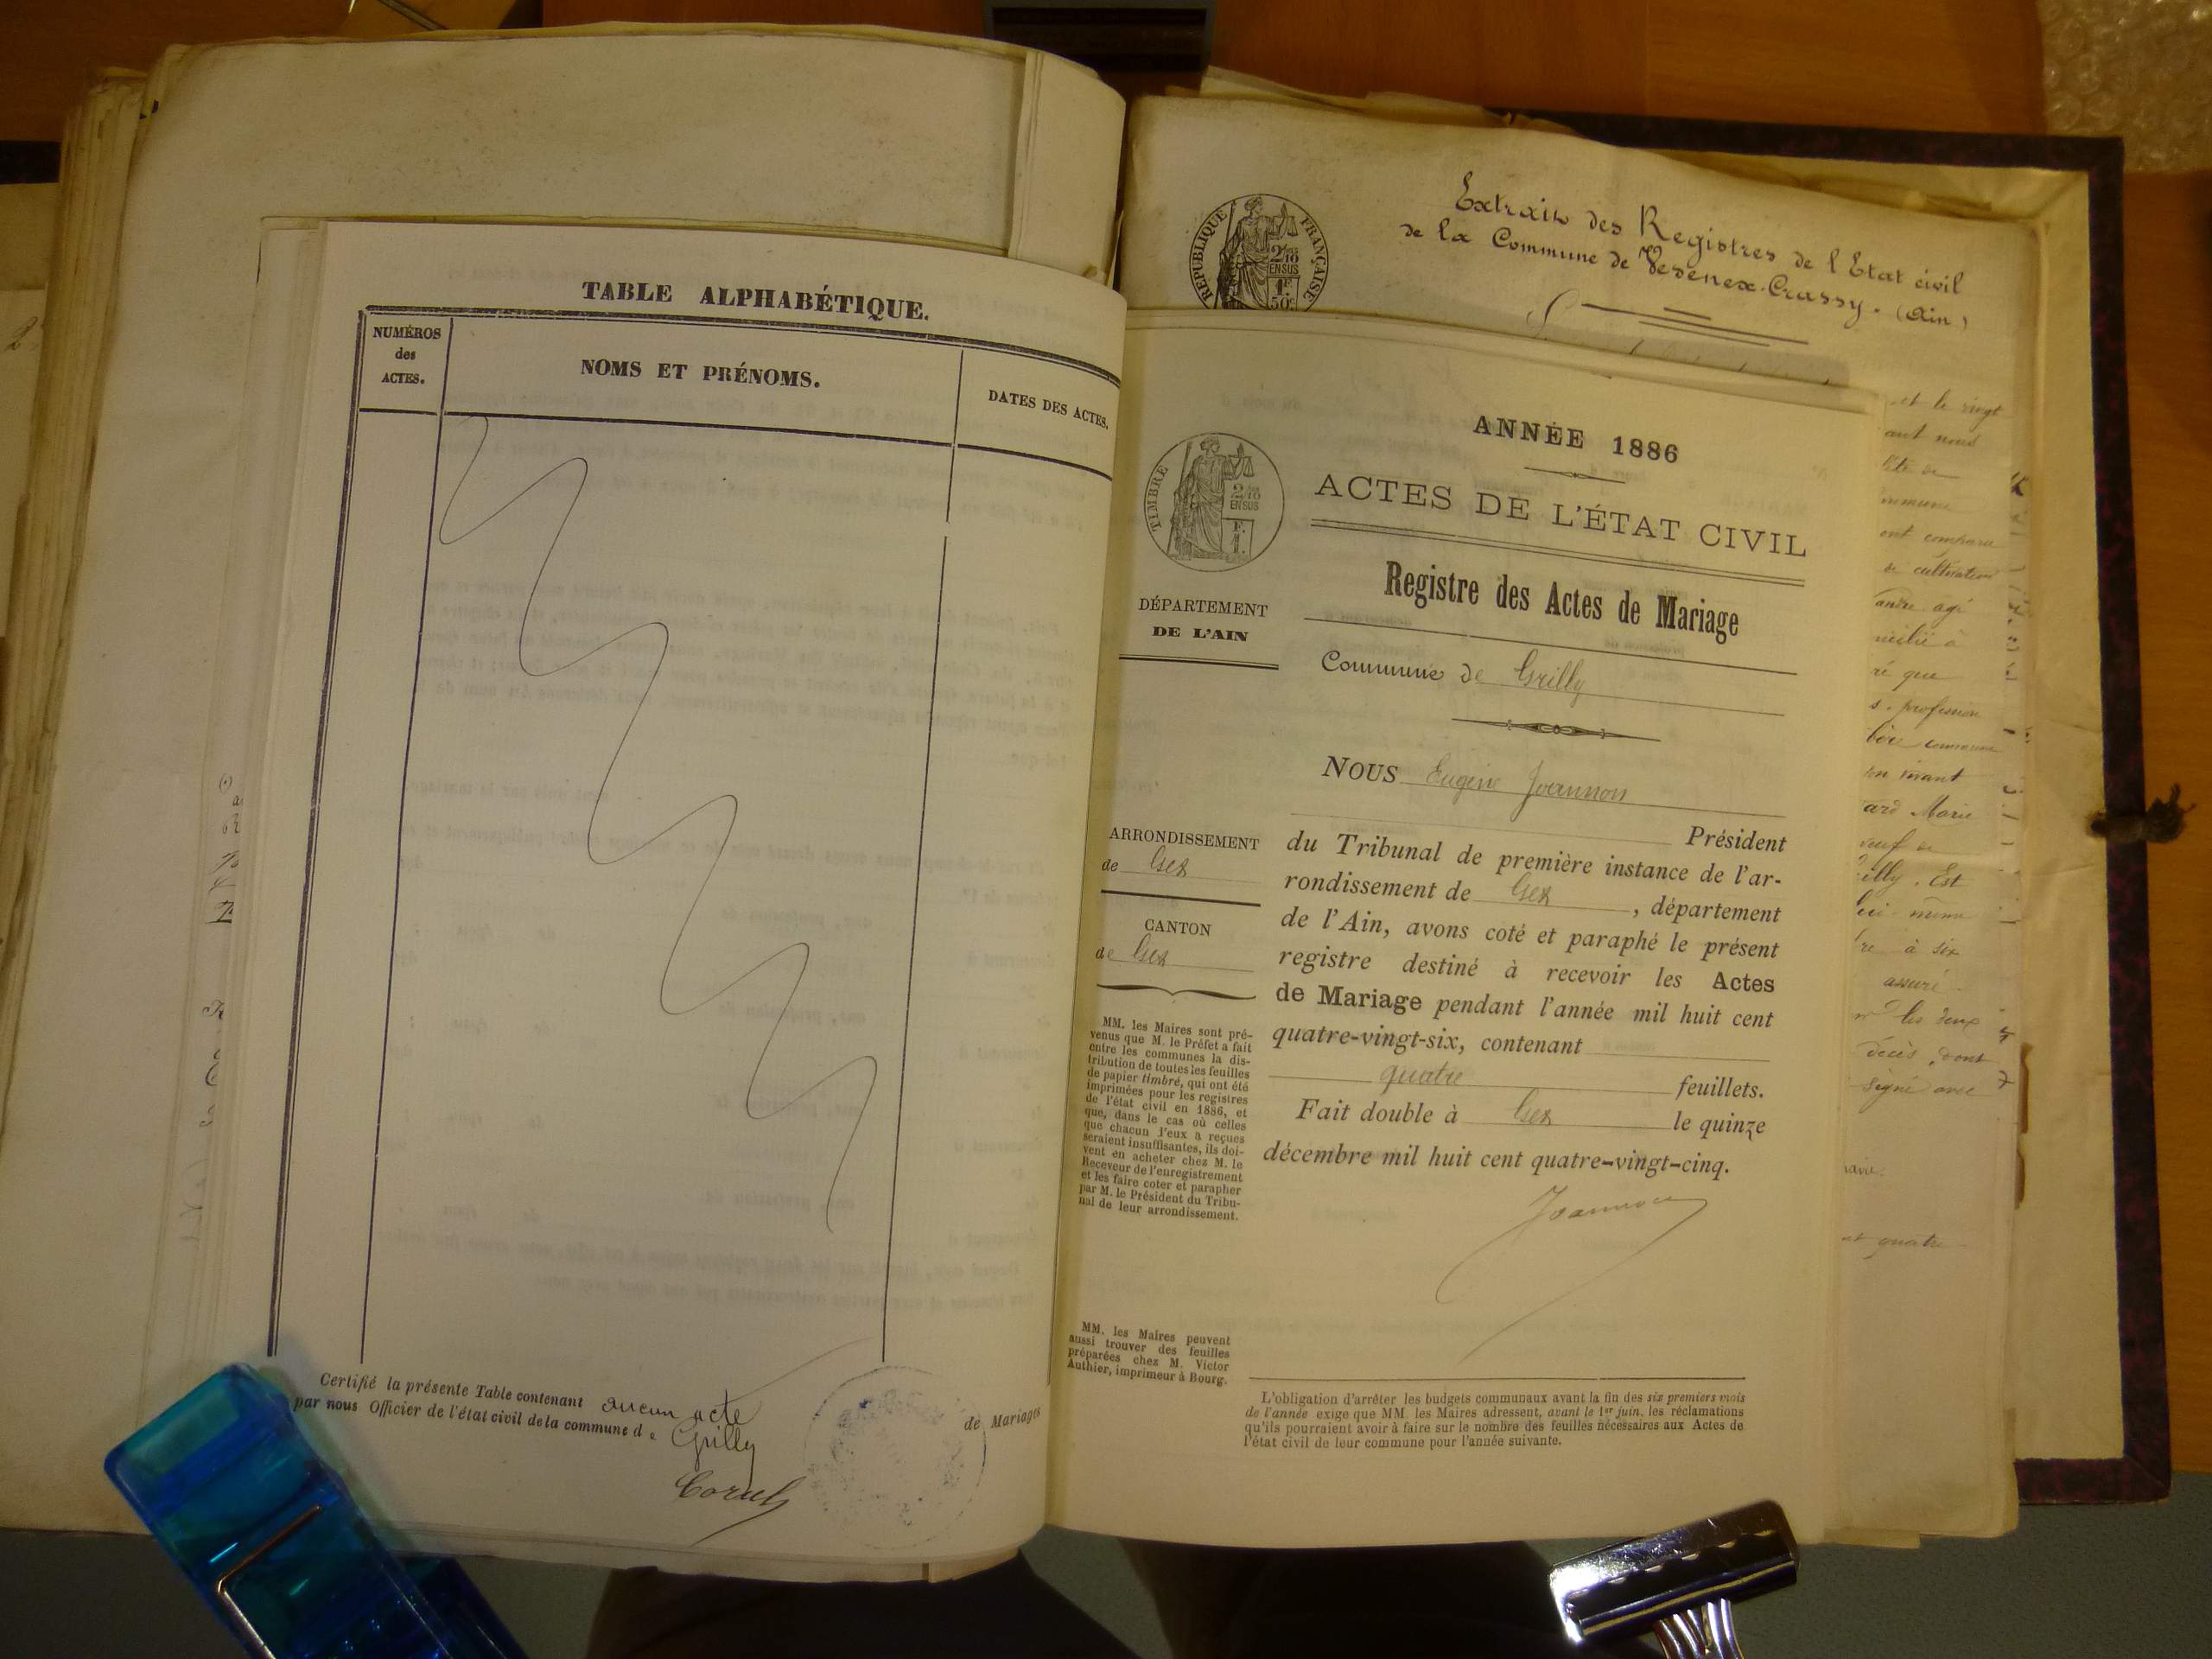 TABLE ALPHABÉTIQUE.
NUMÉROS
des
ACTES.
NOMS ET PRÉNOMS.
DATES DES ACTES.
Certifié la présente Table contenant aucun acte de Mariages
par nous Officier de l'état civil de la commune de Grilly
RÉPUBLIQUE FRANÇAISE
2/10
EN SUS
1F
50c
Extrait des Registres de l'Etat civil
de la Commune de Vesenex-Crassy. (Ain)
TIMBRE
2/10
EN SUS
F.
1.
DÉPARTEMENT
DE L'AIN
ARRONDISSEMENT
de Gex
CANTON
de Gex
MM. les Maires sont pré-
venus que M. le Préfet a fait
entre les communes la dis-
tribution de toutes les feuilles
de papier timbré, qui ont été
imprimées pour les registres
de l'état civil en 1886, et
que, dans le cas où celles
que chacun d'eux a reçues
seraient insuffisantes, ils doi-
vent en acheter chez M. le
Receveur de l'enregistrement
et les faire coter et parapher
par M. le Président du Tribu-
nal de leur arrondissement.
MM. les Maires peuvent
aussi trouver des feuilles
préparées chez M. Victor
Authier, imprimeur à Bourg.
ANNÉE 1886
ACTES DE L'ÉTAT CIVIL
Registre des Actes de Mariage
Commune de Grilly
NOUS Eugène Joannon
Président
du Tribunal de première instance de l'ar-
rondissement de Gex, département
de l'Ain, avons coté et paraphé le présent
registre destiné à recevoir les Actes
de Mariage pendant l'année mil huit cent
quatre-vingt-six, contenant
quatre feuillets.
Fait double à Gex le quinze
décembre mil huit cent quatre-vingt-cinq.
Joannon
L'obligation d'arrêter les budgets communaux avant la fin des six premiers mois
de l'année exige que MM. les Maires adressent, avant le 1er juin, les réclamations
qu'ils pourraient avoir à faire sur le nombre des feuilles nécessaires aux Actes de
l'état civil de leur commune pour l'année suivante.
et le vingt
ont compara
cultivateur
que
profession
commune
Marie
Est
à six
assuré
les deux
décès, dont
signé avec